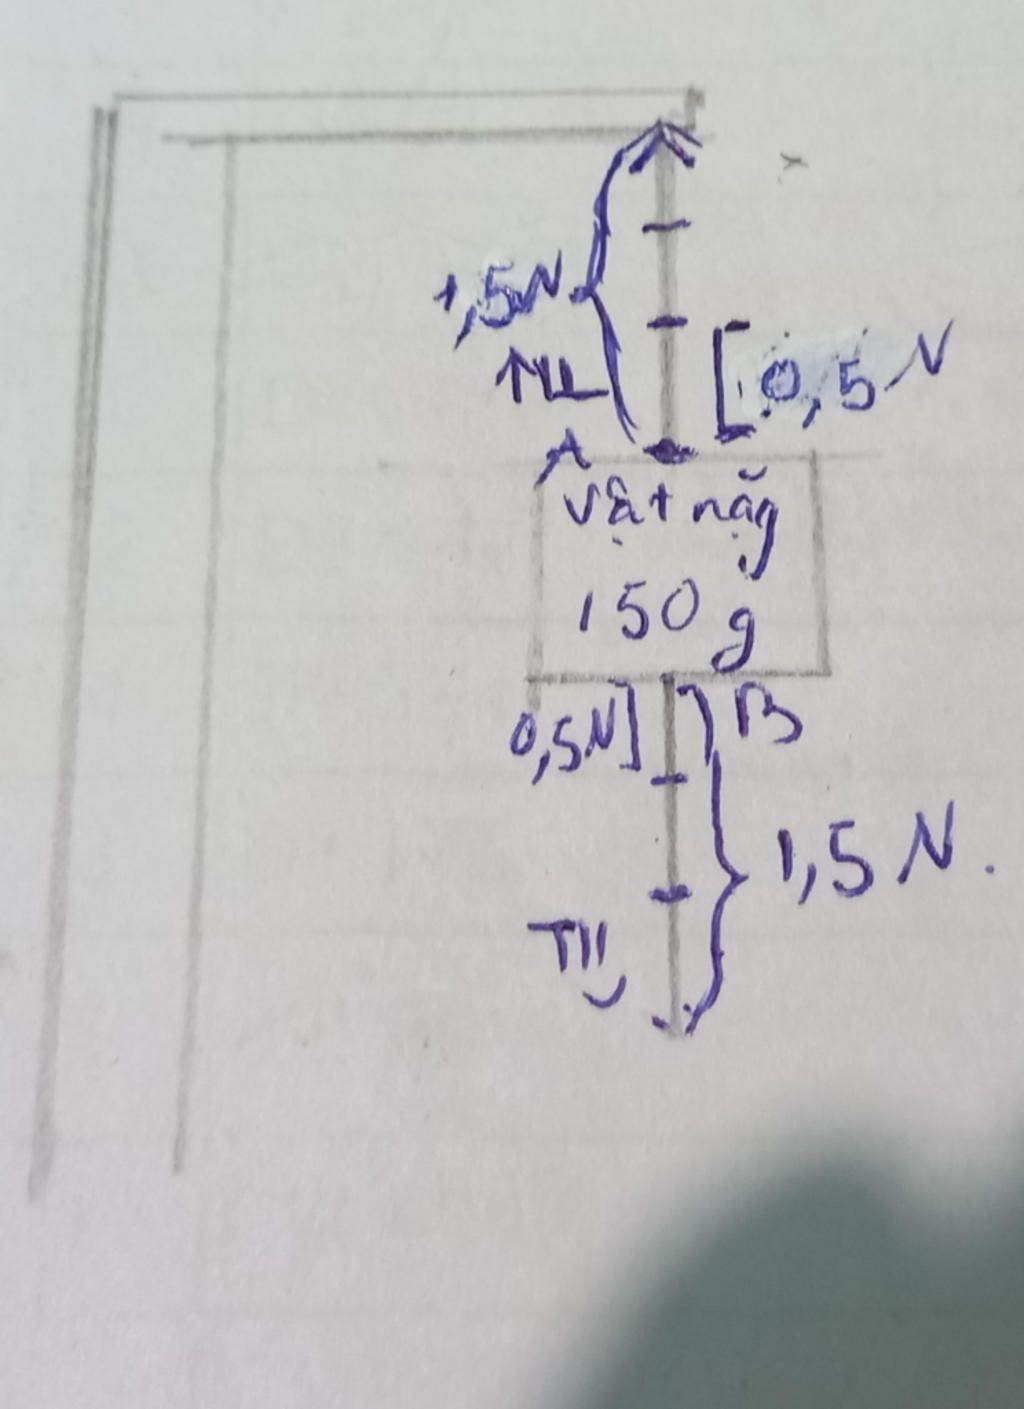 1,5N
[0,5N
A
Vật nặg
150g
0,5N]
B
1,5N.